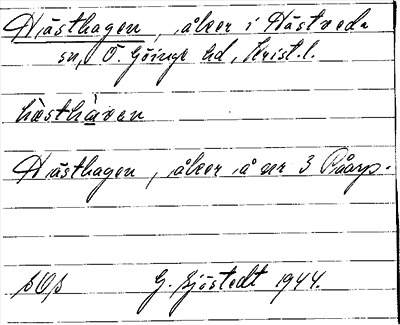 Hästhagen, åker i Hästveda
sn, Ö. Göinge hd, Krist. l.
hästhaven
Hästhagen, åker å nr 3 Råarp.
G. Sjöstedt 1944.